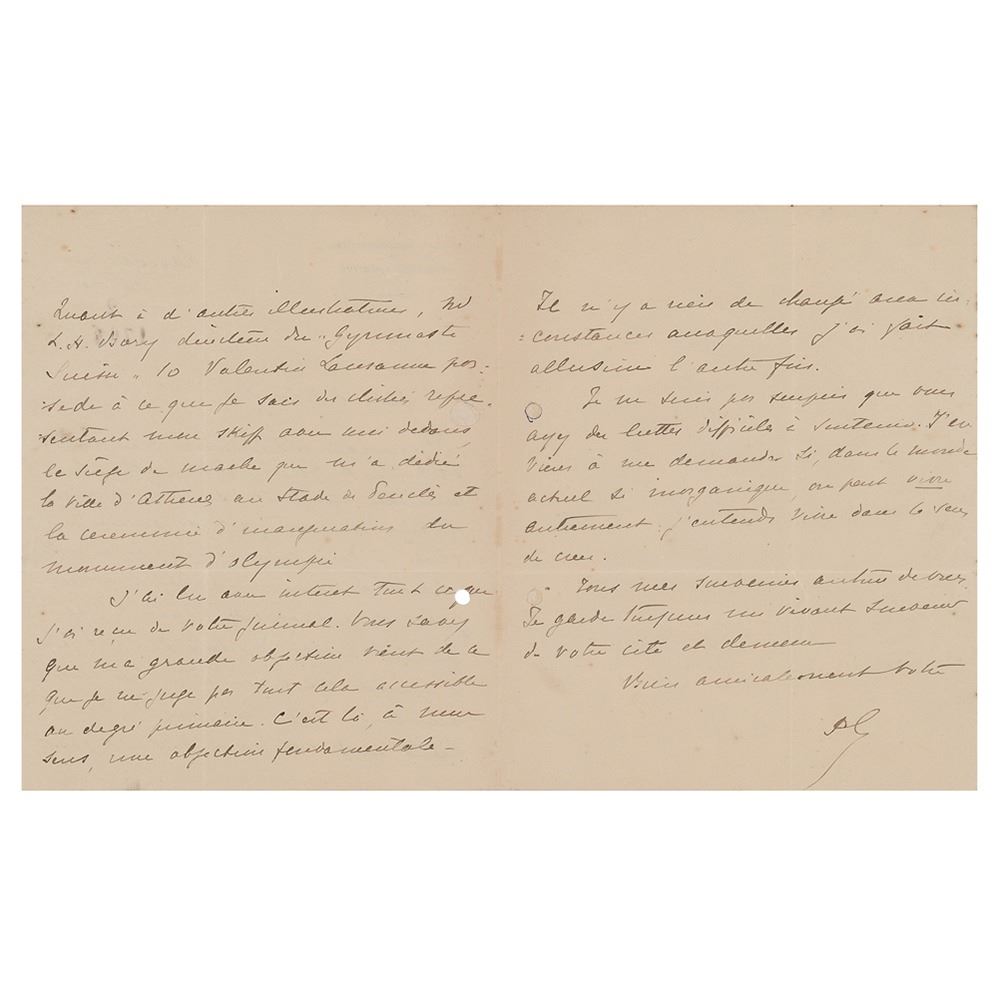 Quant à d'autres illustrations, Mr
L.H. Bory directeur du "Gymnaste
Suisse" 10 Valentin Lausanne pos-
sède à ce que je sais des clichés repré-
sentant mon skiff avec moi dedans,
le siège de marbre que m'a dédié
la ville d'Athènes au Stade de Périclès et
la cérémonie d'inauguration du
monument d'Olympie
J'ai lu avec intérêt tout ce que
j'ai reçu de votre journal. Vous savez
que ma grande objection vient de ce
que je ne juge pas tout cela accessible
au degré primaire. C'est là, à mon
sens, une objection fondamentale -
Il n'y a rien de changé aux cir-
constances auxquelles j'ai fait
allusion l'autre fois.
Je ne suis pas surpris que vous
ayez des luttes difficiles à soutenir. J'en
viens à me demander si, dans le monde
actuel si inorganique, on peut vivre
autrement. j'entends vivre dans le sens
de créer.
Tous mes souvenirs autour de vous
Je garde toujours un vivant souvenir
de votre cité et demeure
Bien amicalement votre
PC